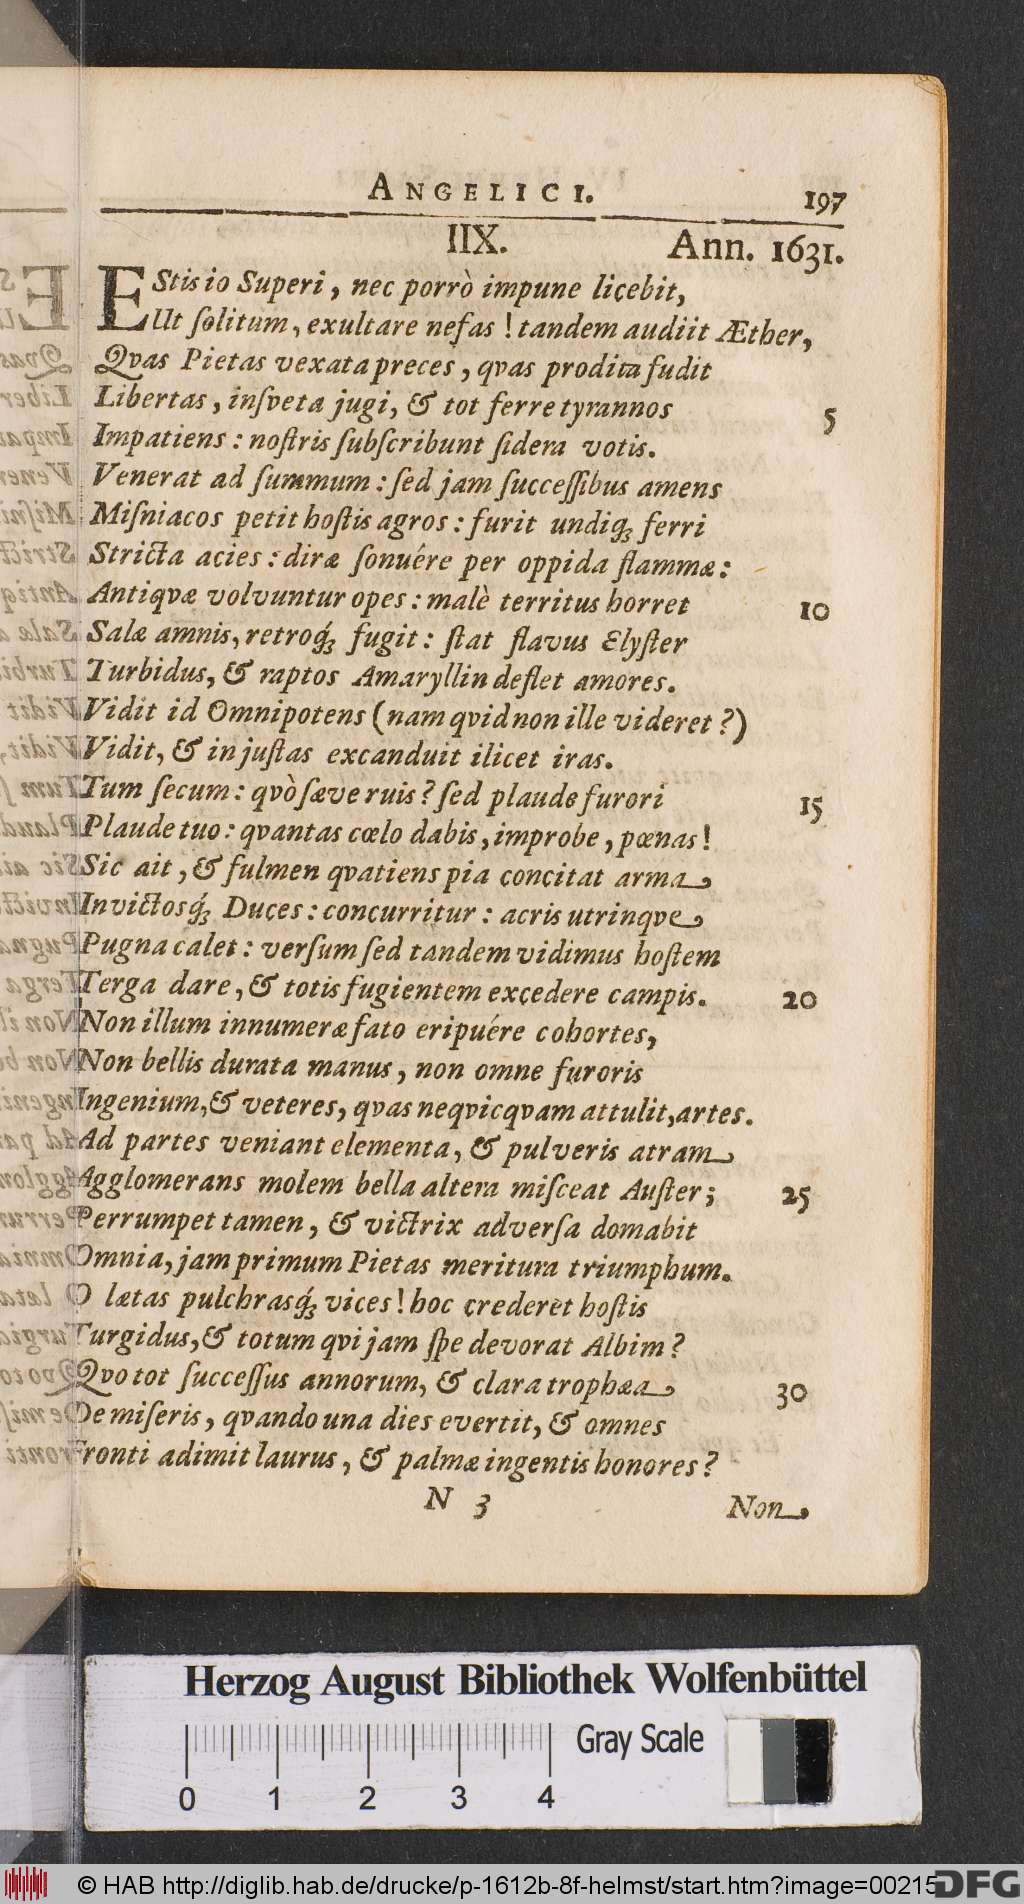 ANGELICI. 197
IIX. Ann. 1631.
EStis io Superi, nec porrò impune licebit,
Ut ſolitum, exultare nefas! tandem audiit Æther,
Qvas Pietas vexata preces, qvas prodita fudit
Libertas, inſveta jugi, & tot ferre tyrannos 5
Impatiens: noſtris ſubſcribunt ſidera votis.
Venerat ad ſummum: ſed jam ſucceſſibus amens
Miſniacos petit hoſtis agros: furit undiq́; ferri
Stricta acies: diræ ſonuére per oppida flammæ:
Antiqvæ volvuntur opes: malè territus horret 10
Salæ amnis, retroq́; fugit: ſtat flavus Elyſter
Turbidus, & raptos Amaryllin deflet amores.
Vidit id Omnipotens (nam qvid non ille videret?)
Vidit, & in juſtas excanduit ilicet iras.
Tum ſecum: qvò ſæve ruis? ſed plaude furori 15
Plaude tuo: qvantas cœlo dabis, improbe, pœnas!
Sic ait, & fulmen qvatiens pia concitat arma
Invictosq́; Duces: concurritur: acris utrinqve
Pugna calet: verſum ſed tandem vidimus hoſtem
Terga dare, & totis fugientem excedere campis. 20
Non illum innumeræ fato eripuére cohortes,
Non bellis durata manus, non omne furoris
Ingenium, & veteres, qvas neqvicqvam attulit, artes.
Ad partes veniant elementa, & pulveris atram
Agglomerans molem bella altera miſceat Auſter; 25
Perrumpet tamen, & victrix adverſa domabit
Omnia, jam primum Pietas meritura triumphum.
O lætas pulchrasq́; vices! hoc crederet hoſtis
Turgidus, & totum qvi jam ſpe devorat Albim?
Qvo tot ſucceſſus annorum, & clara trophæa 30
De miſeris, qvando una dies evertit, & omnes
Fronti adimit laurus, & palmæ ingentis honores?
N 3 Non
Herzog August Bibliothek Wolfenbüttel
Gray Scale
0 1 2 3 4
© HAB http://diglib.hab.de/drucke/p-1612b-8f-helmst/start.htm?image=00215
DFG